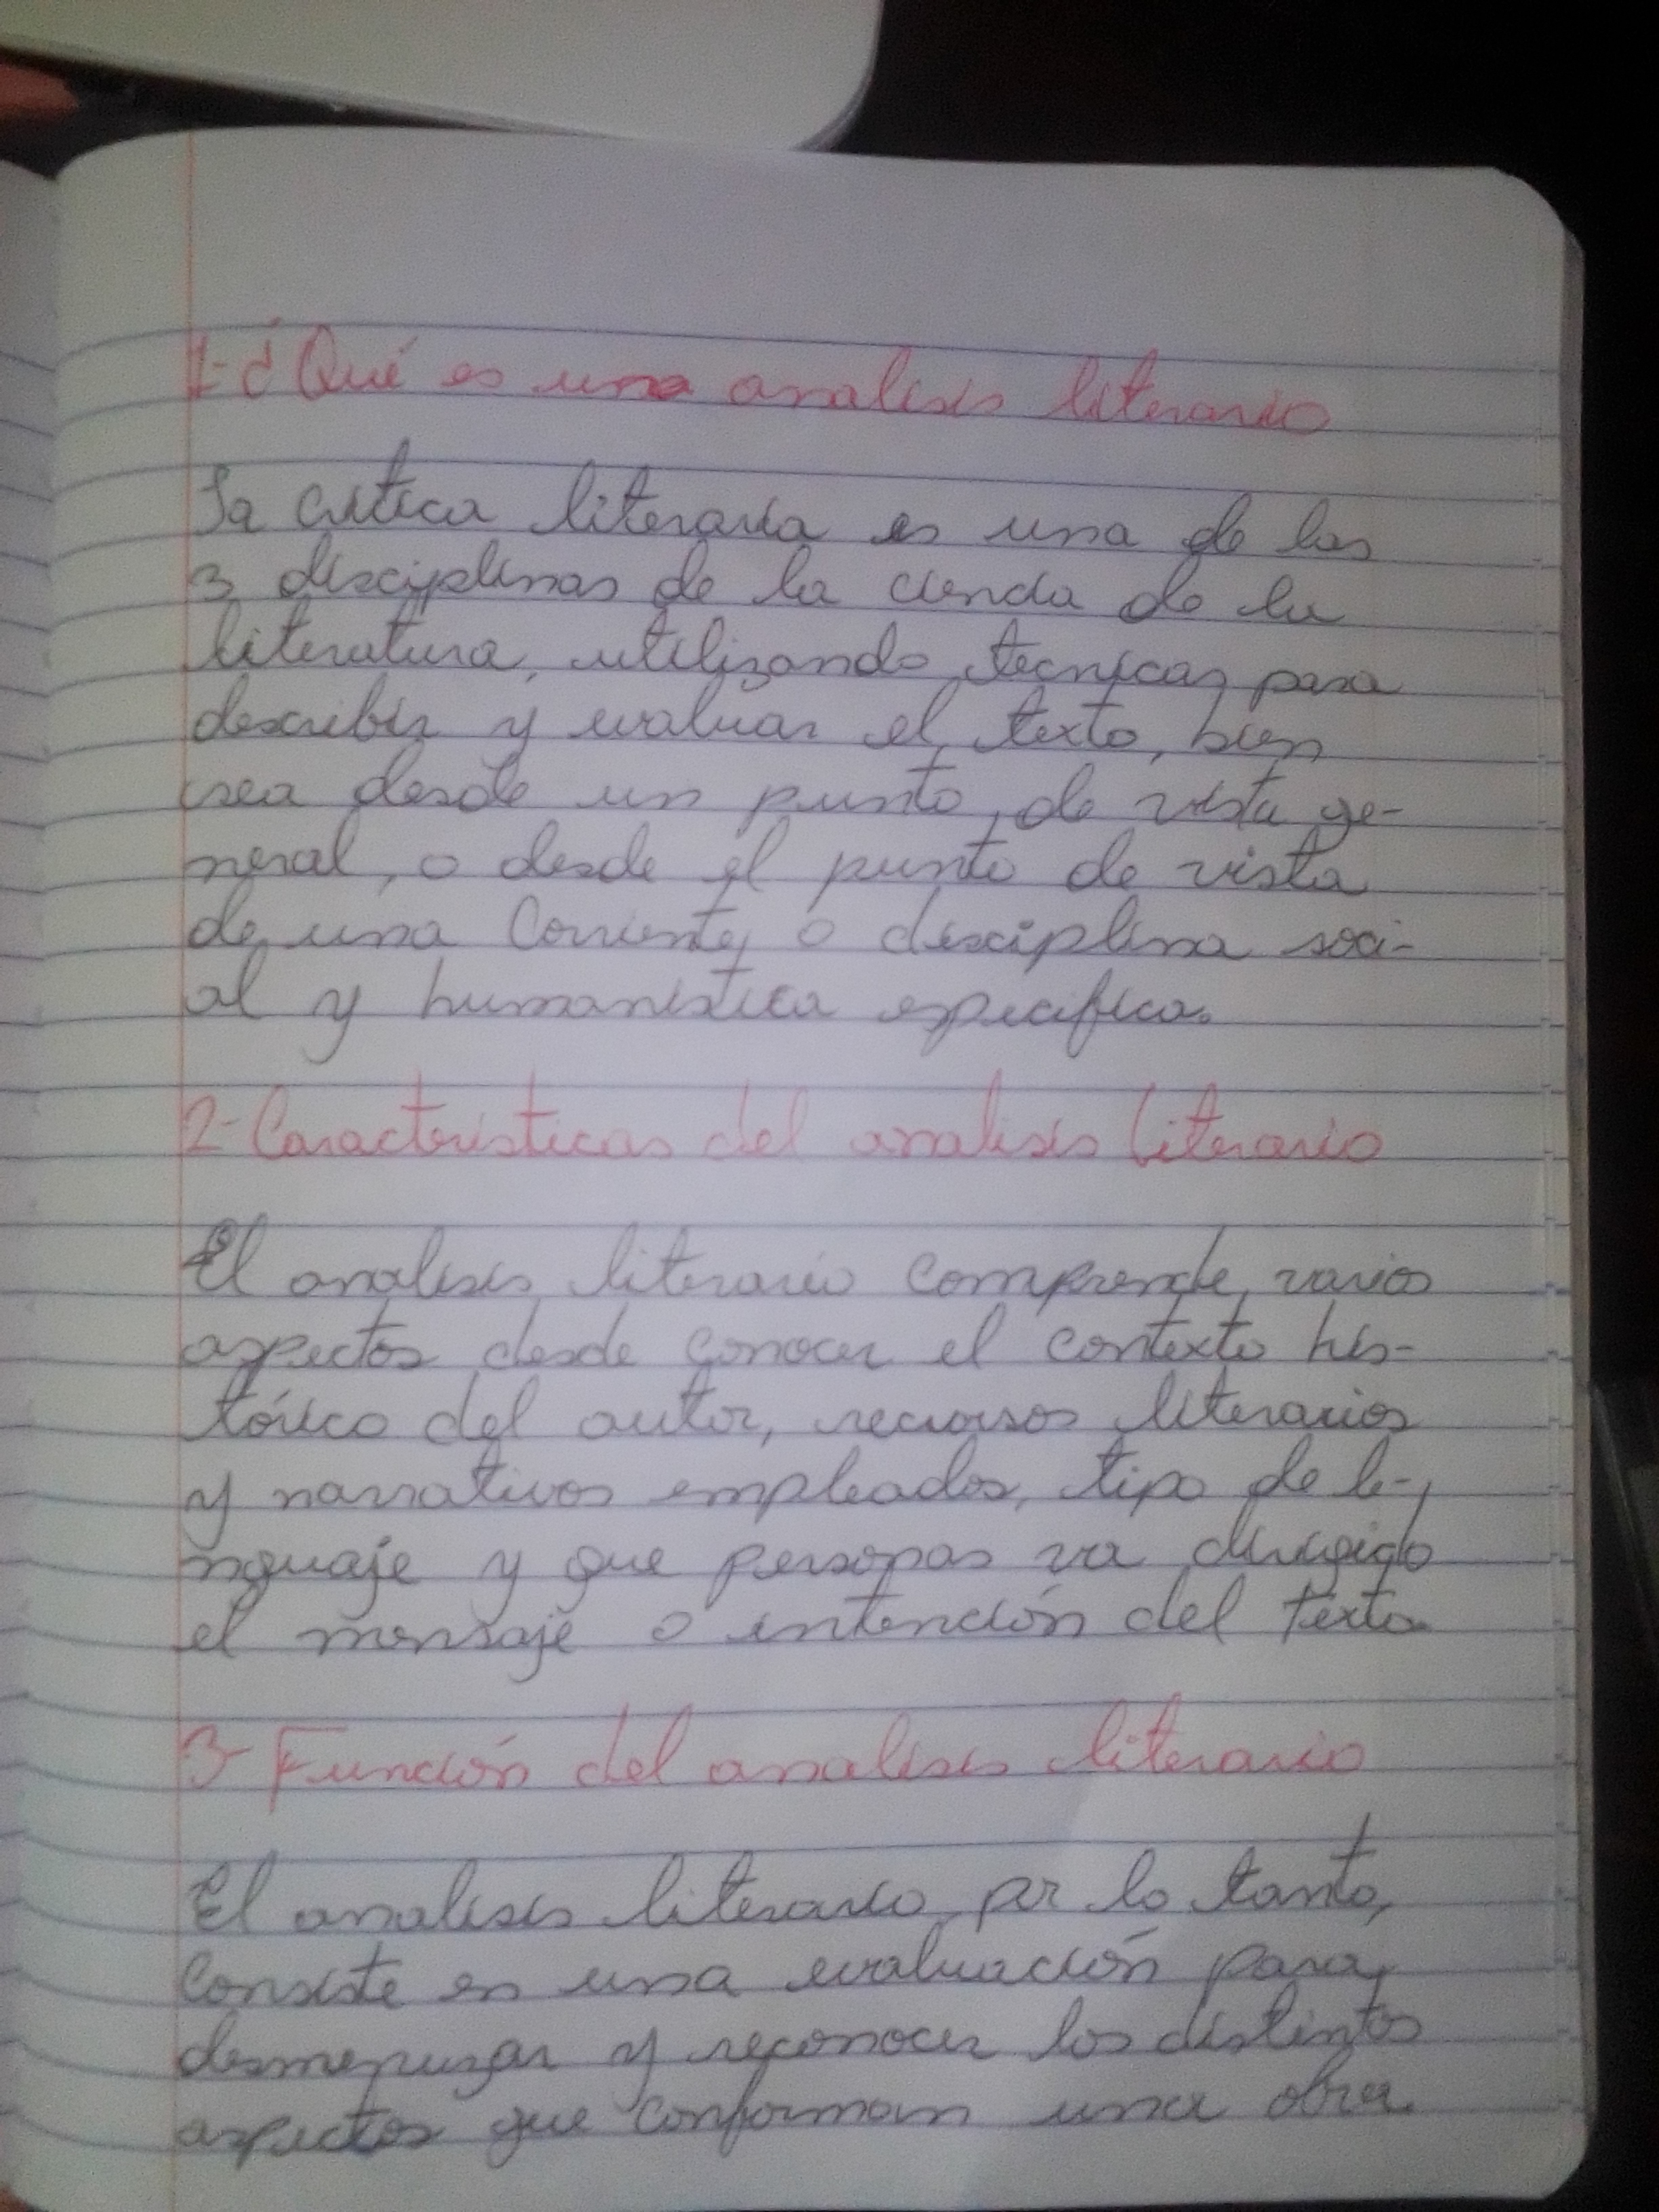 1-¿Qué es una analisis literario
La critica literaria es una de las
3 disciplinas de la ciencia de la
literatura, utilizando tecnicas para
describir y evaluar el texto, bien
sea desde un punto de vista ge-
neral, o desde el punto de vista
de una corriente o disciplina soci-
al y humanística especifica.
2-Caracteristicas del analisis literario
El analisis literario comprende varios
aspectos desde conocer el contexto his-
tórico del autor, recursos literarios
y narrativos empleados, tipo de le-
nguaje y que personas va dirigido
el mensaje o intención del texto.
3-Función del analisis literario
El analisis literario por lo tanto,
consiste en una evaluación para
desmenuzar y reconocer los distintos
aspectos que conforman una obra.